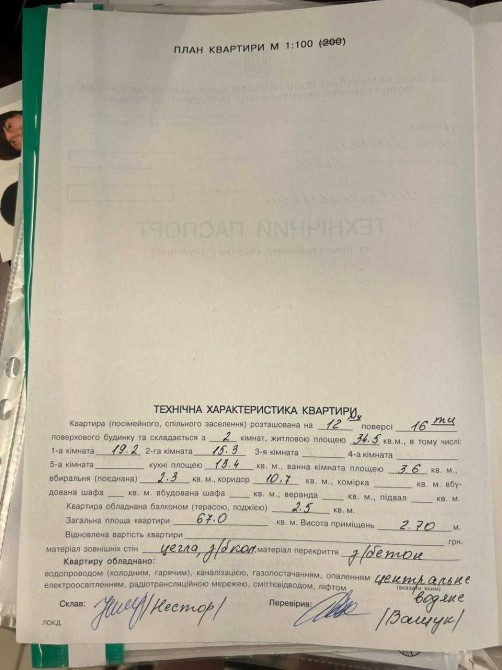 ПЛАН КВАРТИРИ М 1:100 (200)
ТЕХНІЧНИЙ ПАСПОРТ
ТЕХНІЧНА ХАРАКТЕРИСТИКА КВАРТИРИ
Квартира (посімейного, спільного заселення) розташована на 12 поверсі 16 ти
поверхового будинку та складається з 2 кімнат, житловою площею 34.5 кв.м., в тому числі:
1-а кімната 19.2 2-га кімната 15.3 3-я кімната 4-а кімната
5-а кімната кухні площею 13.4 кв. м., ванна кімната площею 3.6 кв. м.,
вбиральня (поєднана) 2.3 кв. м., коридор 10.7 кв. м., комірка кв. м. вбу-
дована шафа кв. м. вбудована шафа кв. м., веранда кв. м., підвал кв. м.
Квартира обладнана балконом (терасою, лоджією) 2.5 кв. м.
Загальна площа квартири 67.0 кв. м. Висота приміщень 2.70 м.
Відновлена вартість квартири грн.
матеріал зовнішніх стін цегла, з/бкол. матеріал перекриття з/бетон
Квартиру обладнано:
водопроводом (холодним, гарячим), каналізацією, газопостачанням, опаленням центральне
(вказати яким)
електроосвітленням, радіотрансляційною мережею, сміттєвідводом, ліфтом водяне
Склав: /Нестор/ Перевірив: /Ващук/
ЛОКД